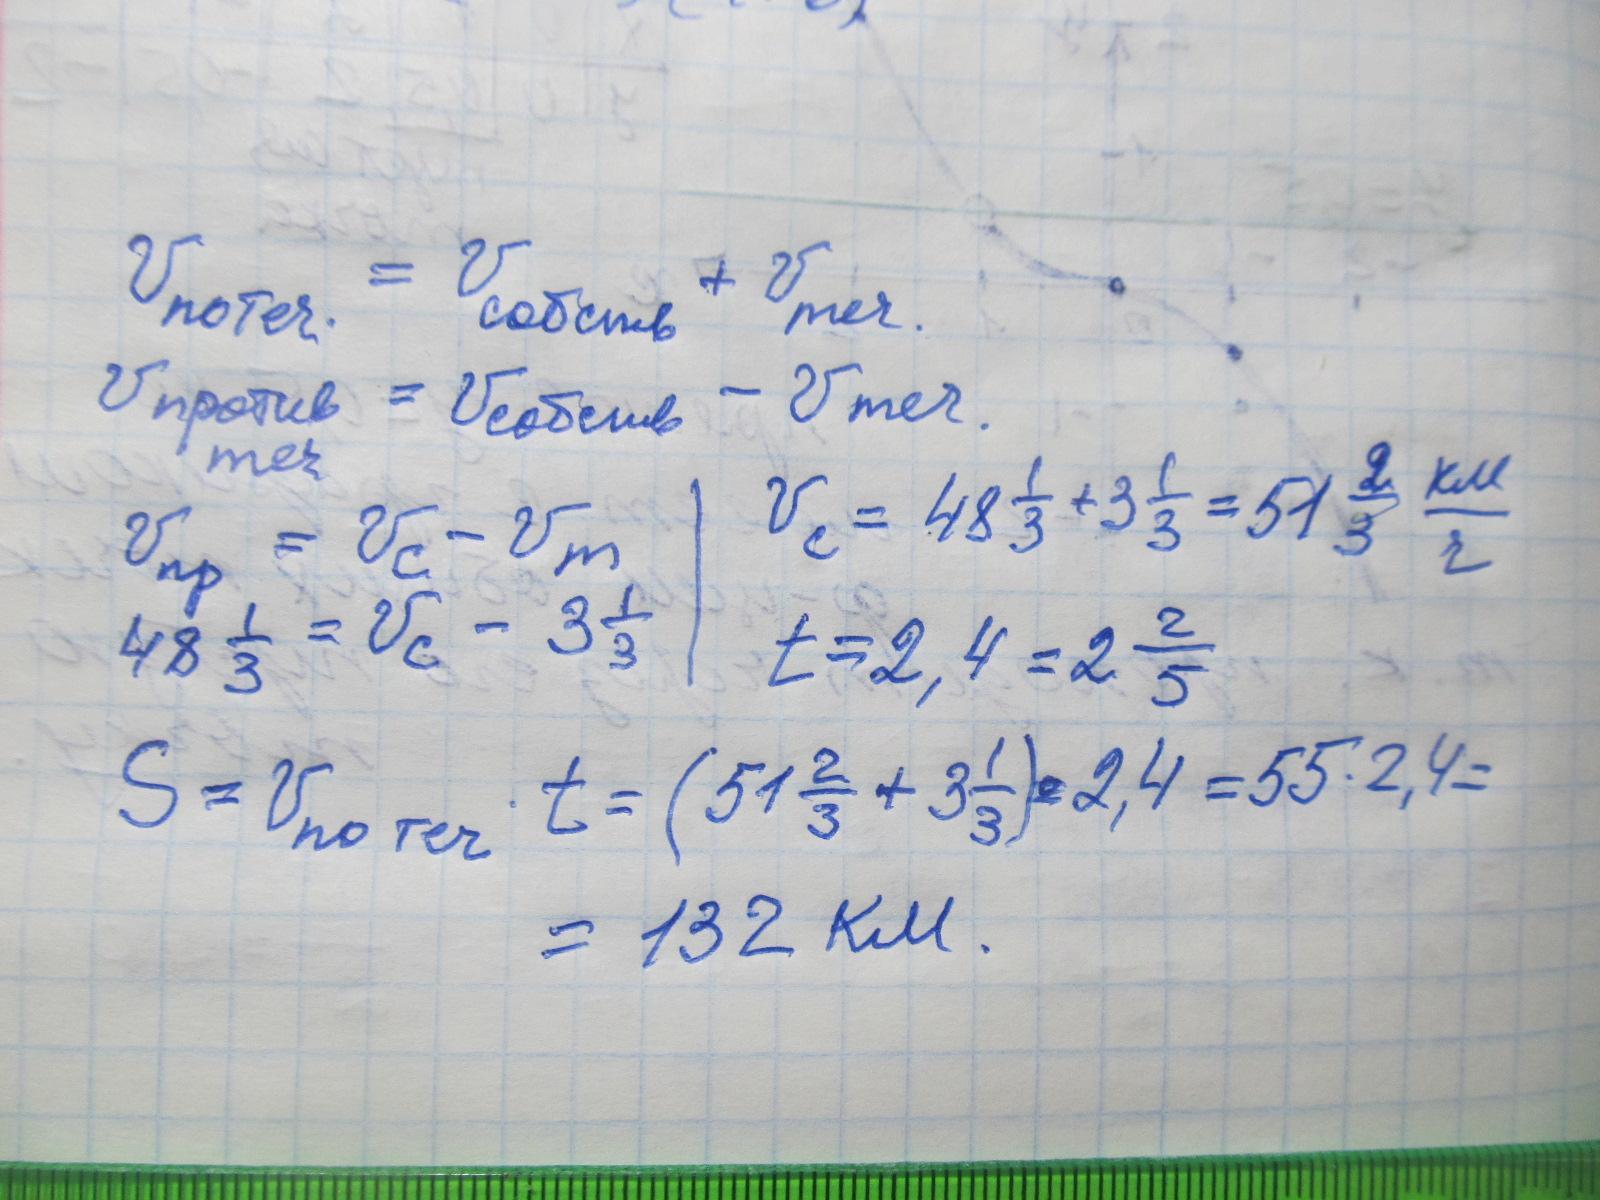 v по теч. = v собств + v теч.
v против теч = v собств - v теч.
v пр = v с - v т
48 1/3 = v с - 3 1/3
v с = 48 1/3 + 3 1/3 = 51 2/3 км/ч
t = 2,4 = 2 2/5
S = v по теч · t = (51 2/3 + 3 1/3) · 2,4 = 55 · 2,4 =
= 132 км.